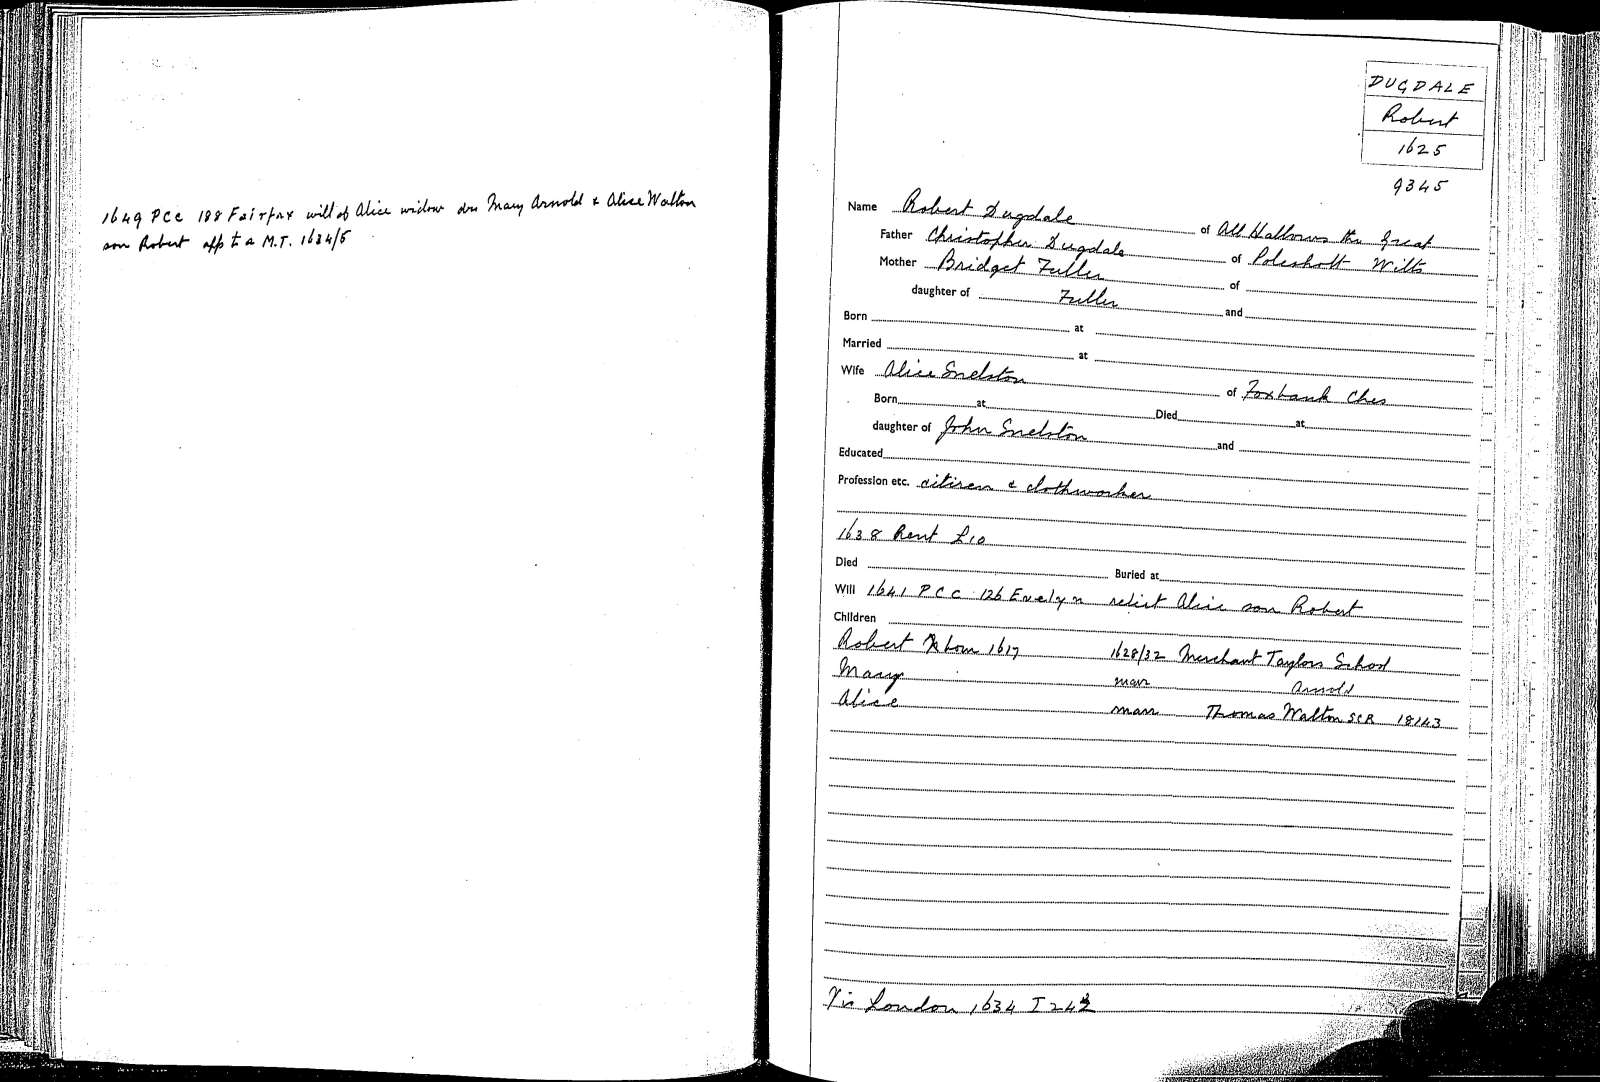 1649 PCC 188 Fairfax will of Alice widow drs Mary Arnold & Alice Walton
son Robert app to a M.T. 1634/5
DUGDALE
Robert
1625
9345
Name Robert Dugdale of All Hallows the Great
Father Christopher Dugdale of Polesholt Wilts
Mother Bridget Fuller of
daughter of Fuller and
Born at
Married at
Wife Alice Snelston of Foxbank Ches
Born at Died at
daughter of John Snelston and
Educated
Profession etc. citizen & clothworker
1638 Rent £10
Died Buried at
Will 1641 PCC 126 Evelyn relict Alice son Robert
Children
Robert born 1617 1628/32 Merchant Taylors School
Mary marr Arnold
Alice marr Thomas Walton SCR 18143
Vis London 1634 I 242